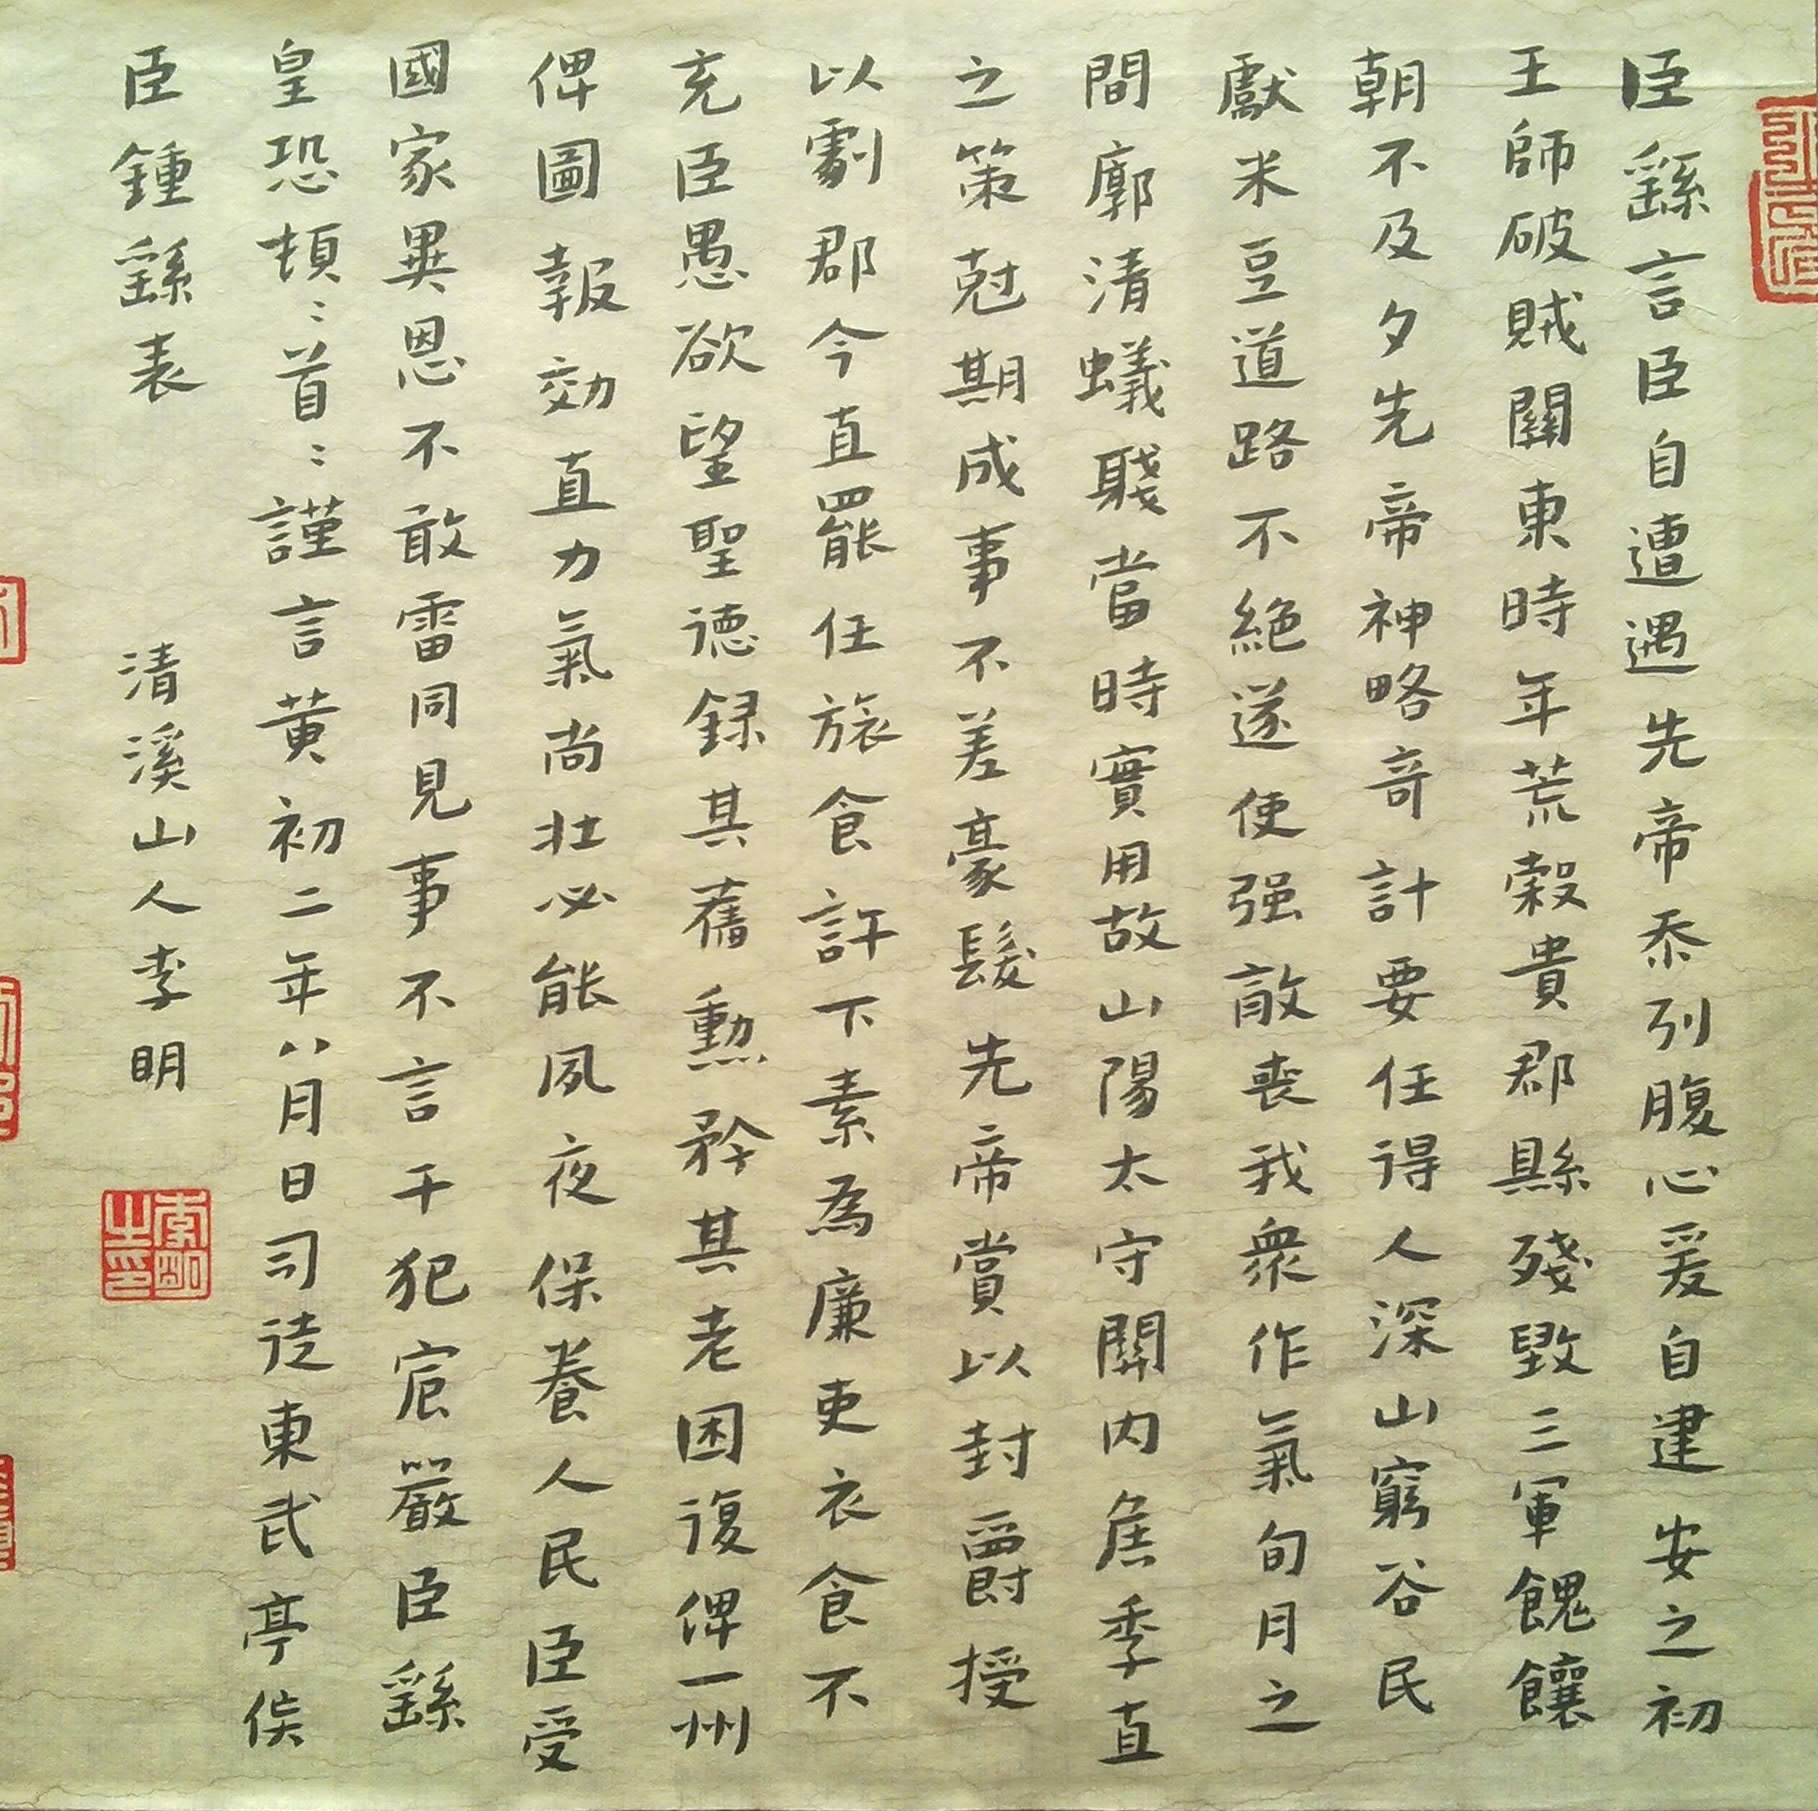 臣繇言臣自遭遇先帝忝列腹心爰自建安之初
王師破賊關東時年荒穀貴郡縣殘毀三軍餽饟
朝不及夕先帝神略奇計委任得人深山窮谷民
獻米豆道路不絕遂使强敵喪我衆作氣旬月之
間廓清蟻聚當時實用故山陽太守關內侯季直
之策尅期成事不差豪髮先帝賞以封爵授
以劇郡今直罷任旅食許下素為廉吏衣食不
充臣愚欲望聖德録其舊勲矜其老困復俾一州
俾圖報効直力氣尚壯必能夙夜保養人民臣受
國家異恩不敢雷同見事不言干犯宸嚴臣繇
皇恐頓〻首〻謹言黃初二年八月日司徒東武亭侯
臣鍾繇表
清溪山人李明
李明之印